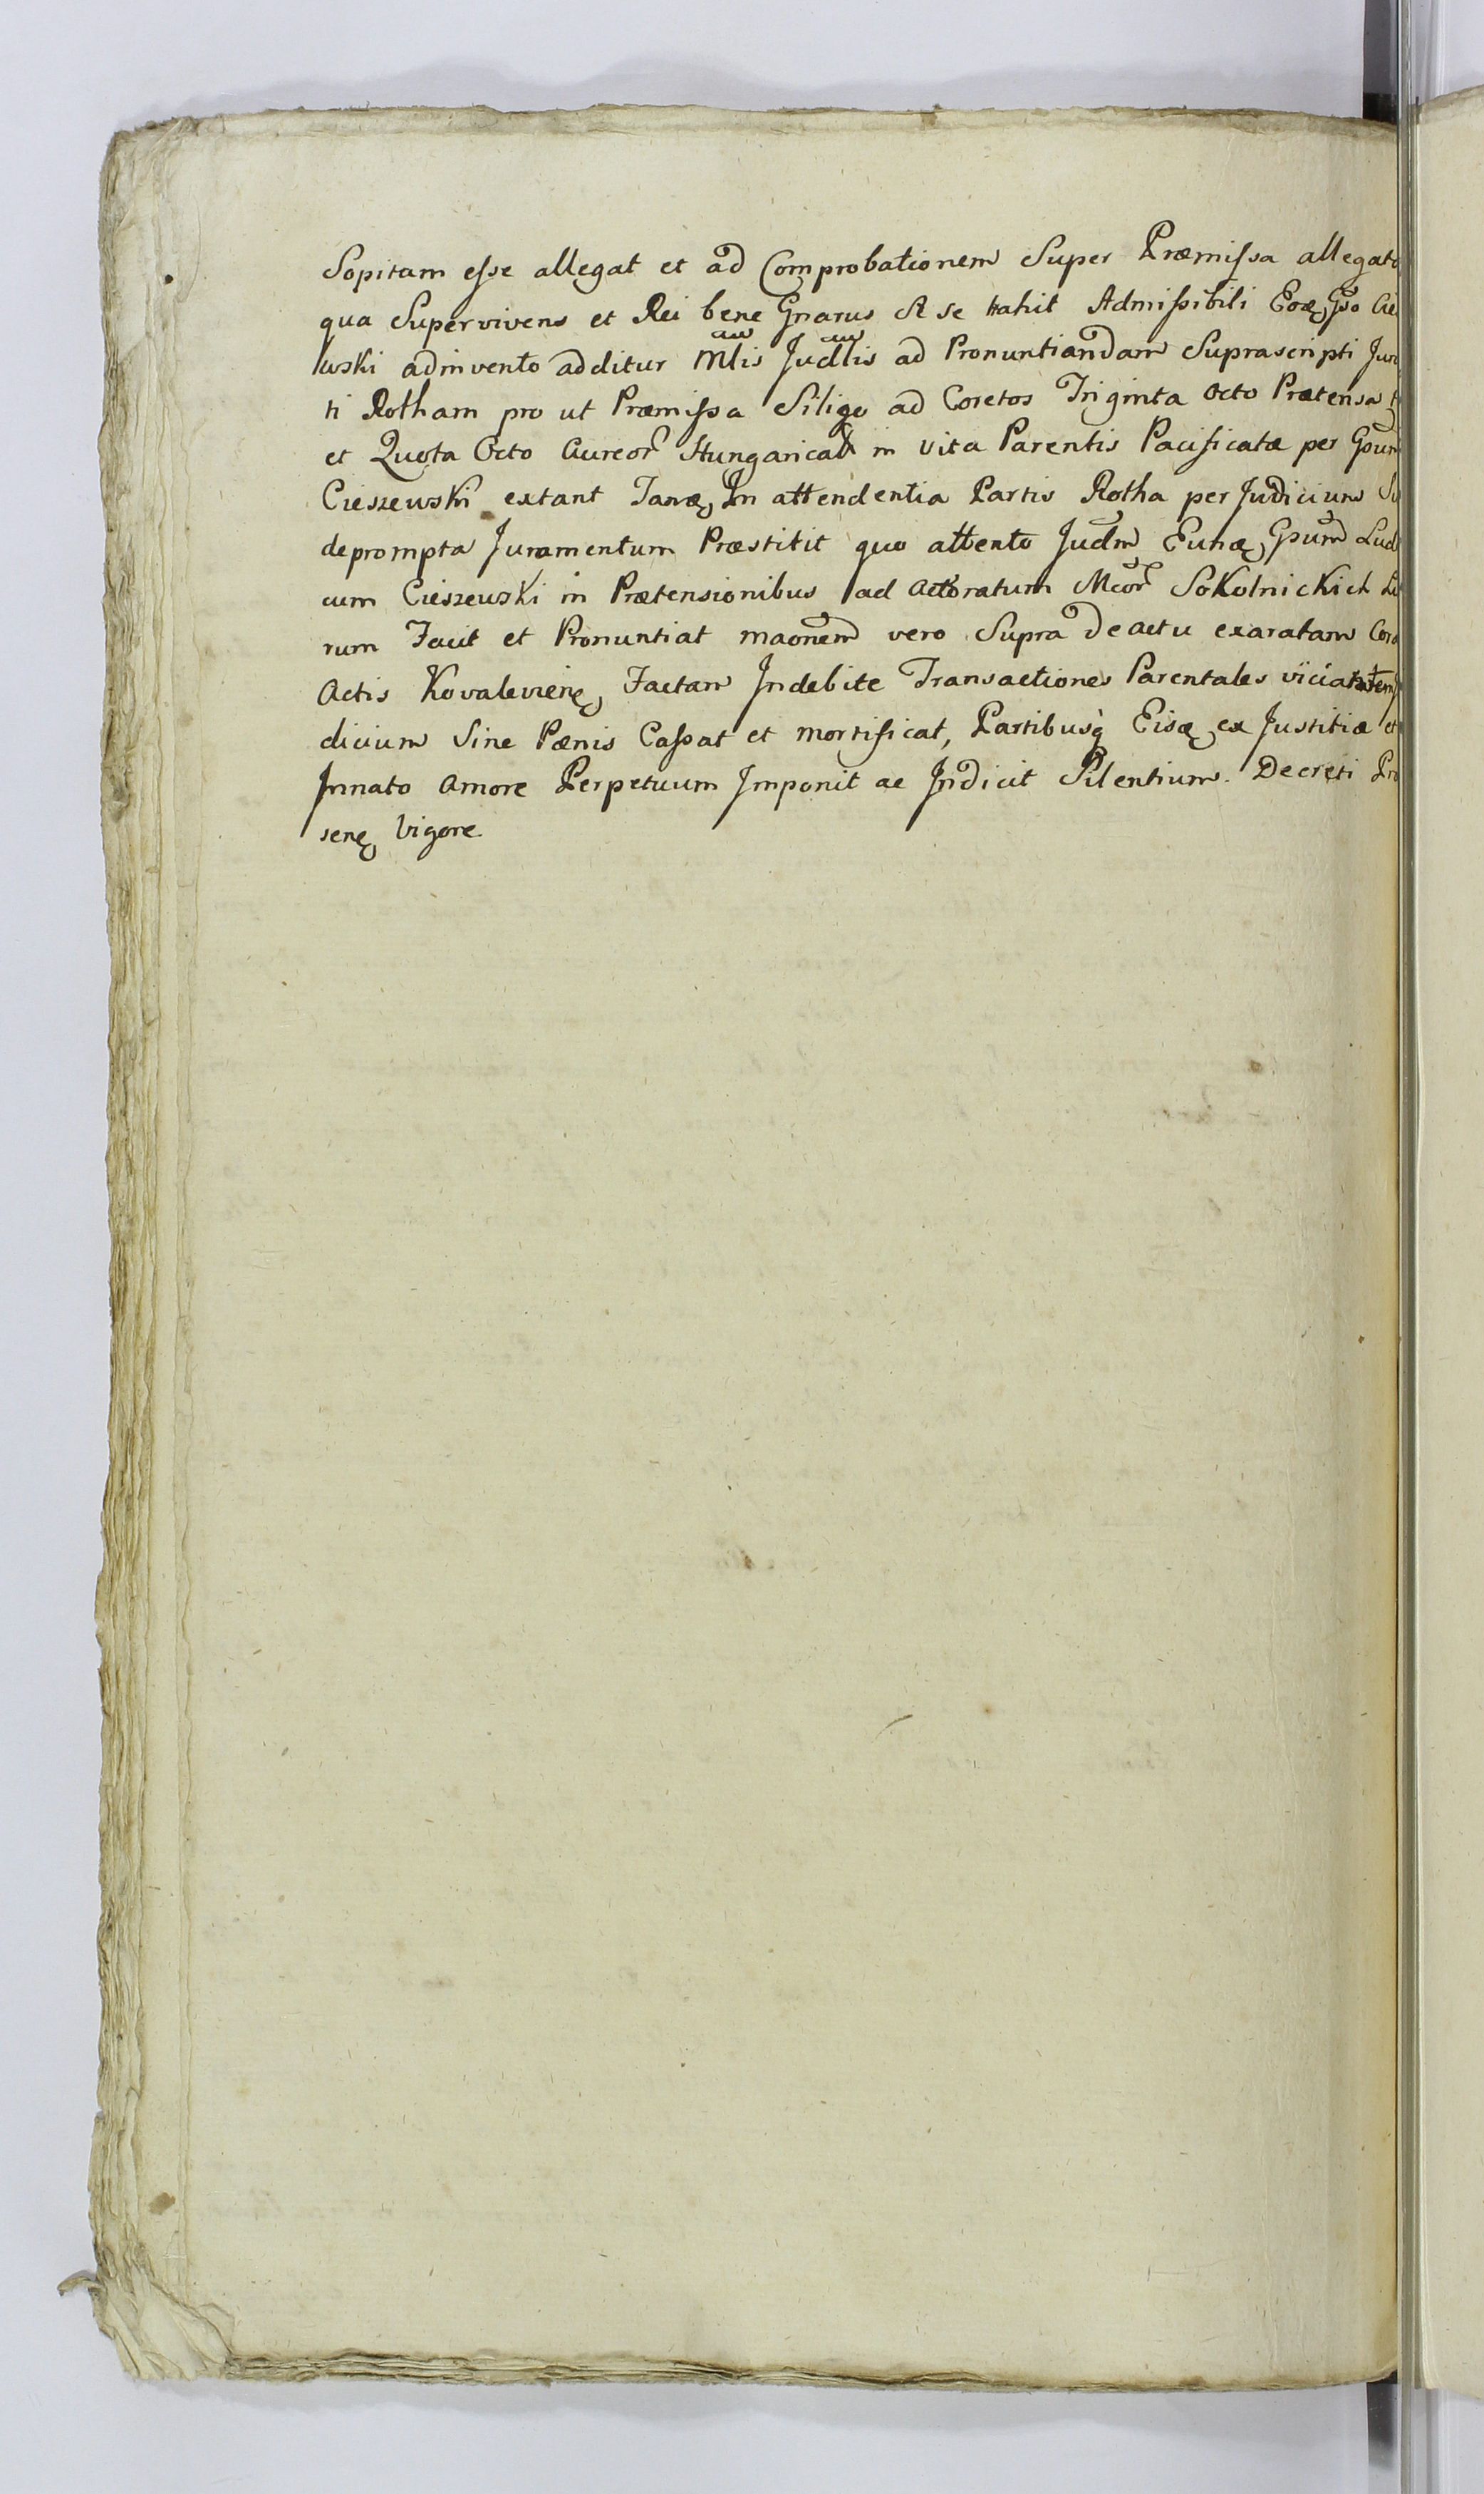 Sopitam esse allegat et ad Comprobationem Super Præmissa allegato
qua Supervivens et Rei bene Gnarus A se trahit Admissibili Eoæ, Gso Cie
wski adinvento additur Mlis Judlis ad Pronuntiandam Suprascripti Jura
ti Rotham pro ut Præmissa Siligo ad Coretos Triginta Octo Prætensa
et Quota Octo Aureor Hungarical in vita Parentis Pacificatæ per Gsum
Cieszewski extant Janæ, In attendentia Partis Rotha per Judicium Su
deprompta Juramentum Præstitit quo attento Judm Eunæ, Gsum Lud
cum Cieszewski in Prætensionibus ad Actoratum Mcor Sokolnickich Li
rum Facit et Pronuntiat maonem vero Supra de actu exaratam Cora
Actis Kovaleviene, Factam Indebite Transactiones Parentales
dicium Sine Pœnis Cassat et mortificat, Partibusq Eisæ, ex Justitiæ et
Innato Amore Perpetuum Imponit ac Indicit Silentium. Decreti Præ
sene, Vigore